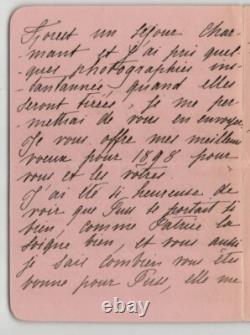 Forest un séjour char-
mant et j'ai pris quel-
ques photographies ins-
tantannés, quand elles
seront tirées, je me per-
mettrai de vous en envoyer
Je vous offre mes meilleurs
vœux pour 1898 pour
vous et les vôtres.
J'ai été si heureuse de
voir que Puss se portait si
bien, comme la
soigne bien, et vous aussi
je sais combien vous êtes
bonne pour Puss, elle me